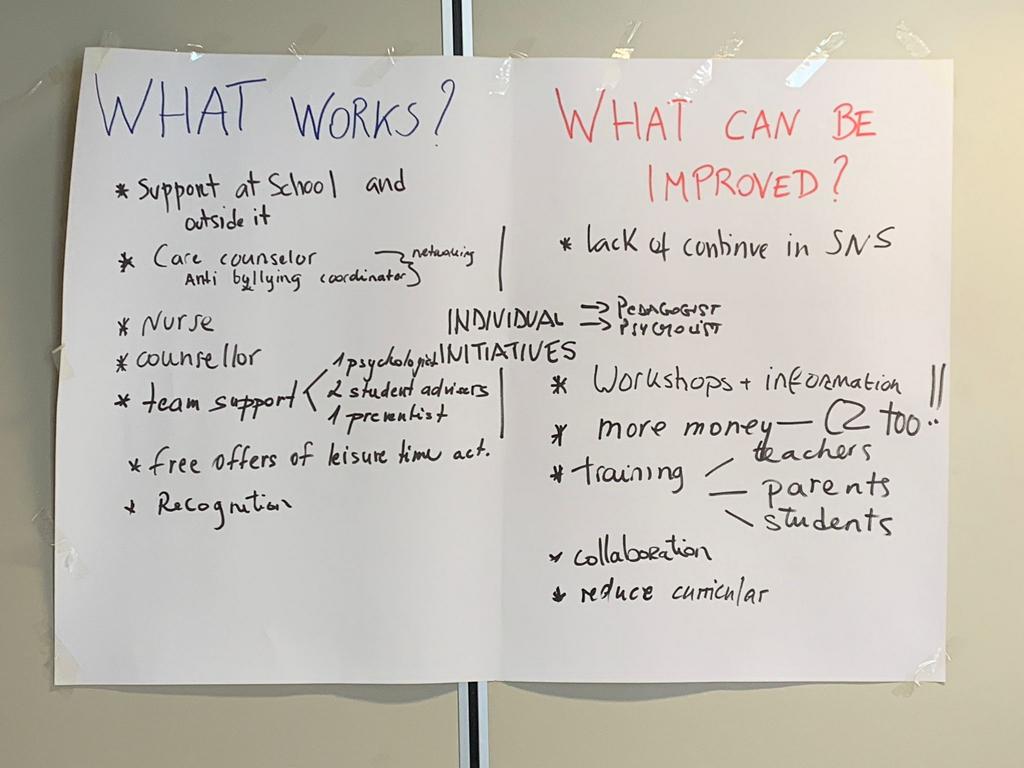 WHAT WORKS?
* Support at School and
outside it
* Care counselor
Anti bullying coordinator
networking
* Nurse
* counsellor
* team support
1 psychologist
2 student advisers
1 preventist
* free offers of leisure time act.
* Recognition
INDIVIDUAL
INITIATIVES
→ PEDAGOGIST
→
WHAT CAN BE
IMPROVED?
* lack of continue in SNS
* Workshops + information !!
* more money — CZ too!!
* training
teachers
— parents
students
* collaboration
* reduce curricular